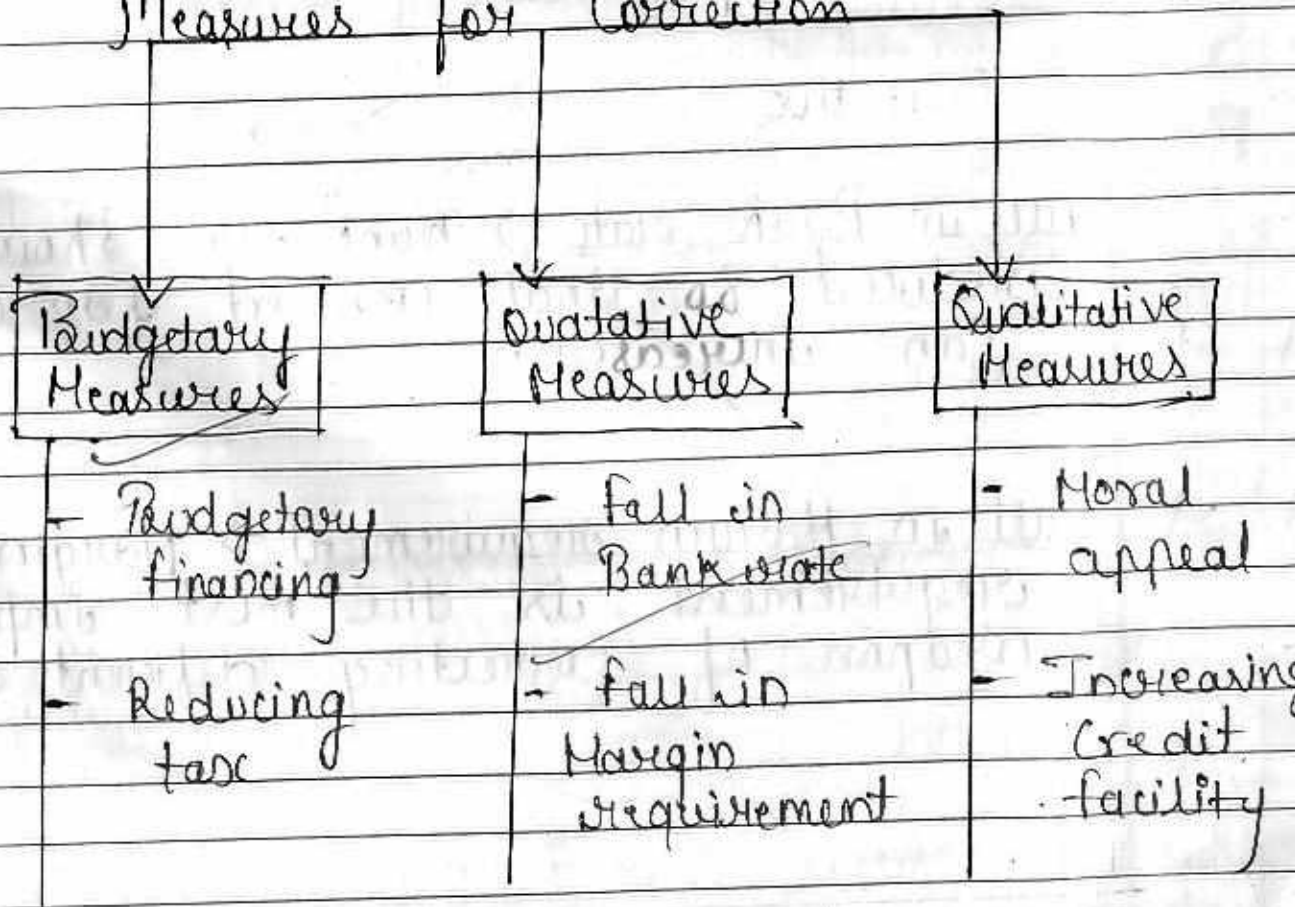 Measures for Correction
Budgetary
Measures
Quatative
Measures
Qualitative
Measures
- Budgetary
financing
- Reducing
tax
- fall in
Bank rate
- fall in
Margin
requirement
- Moral
appeal
- Increasing
Credit
facility